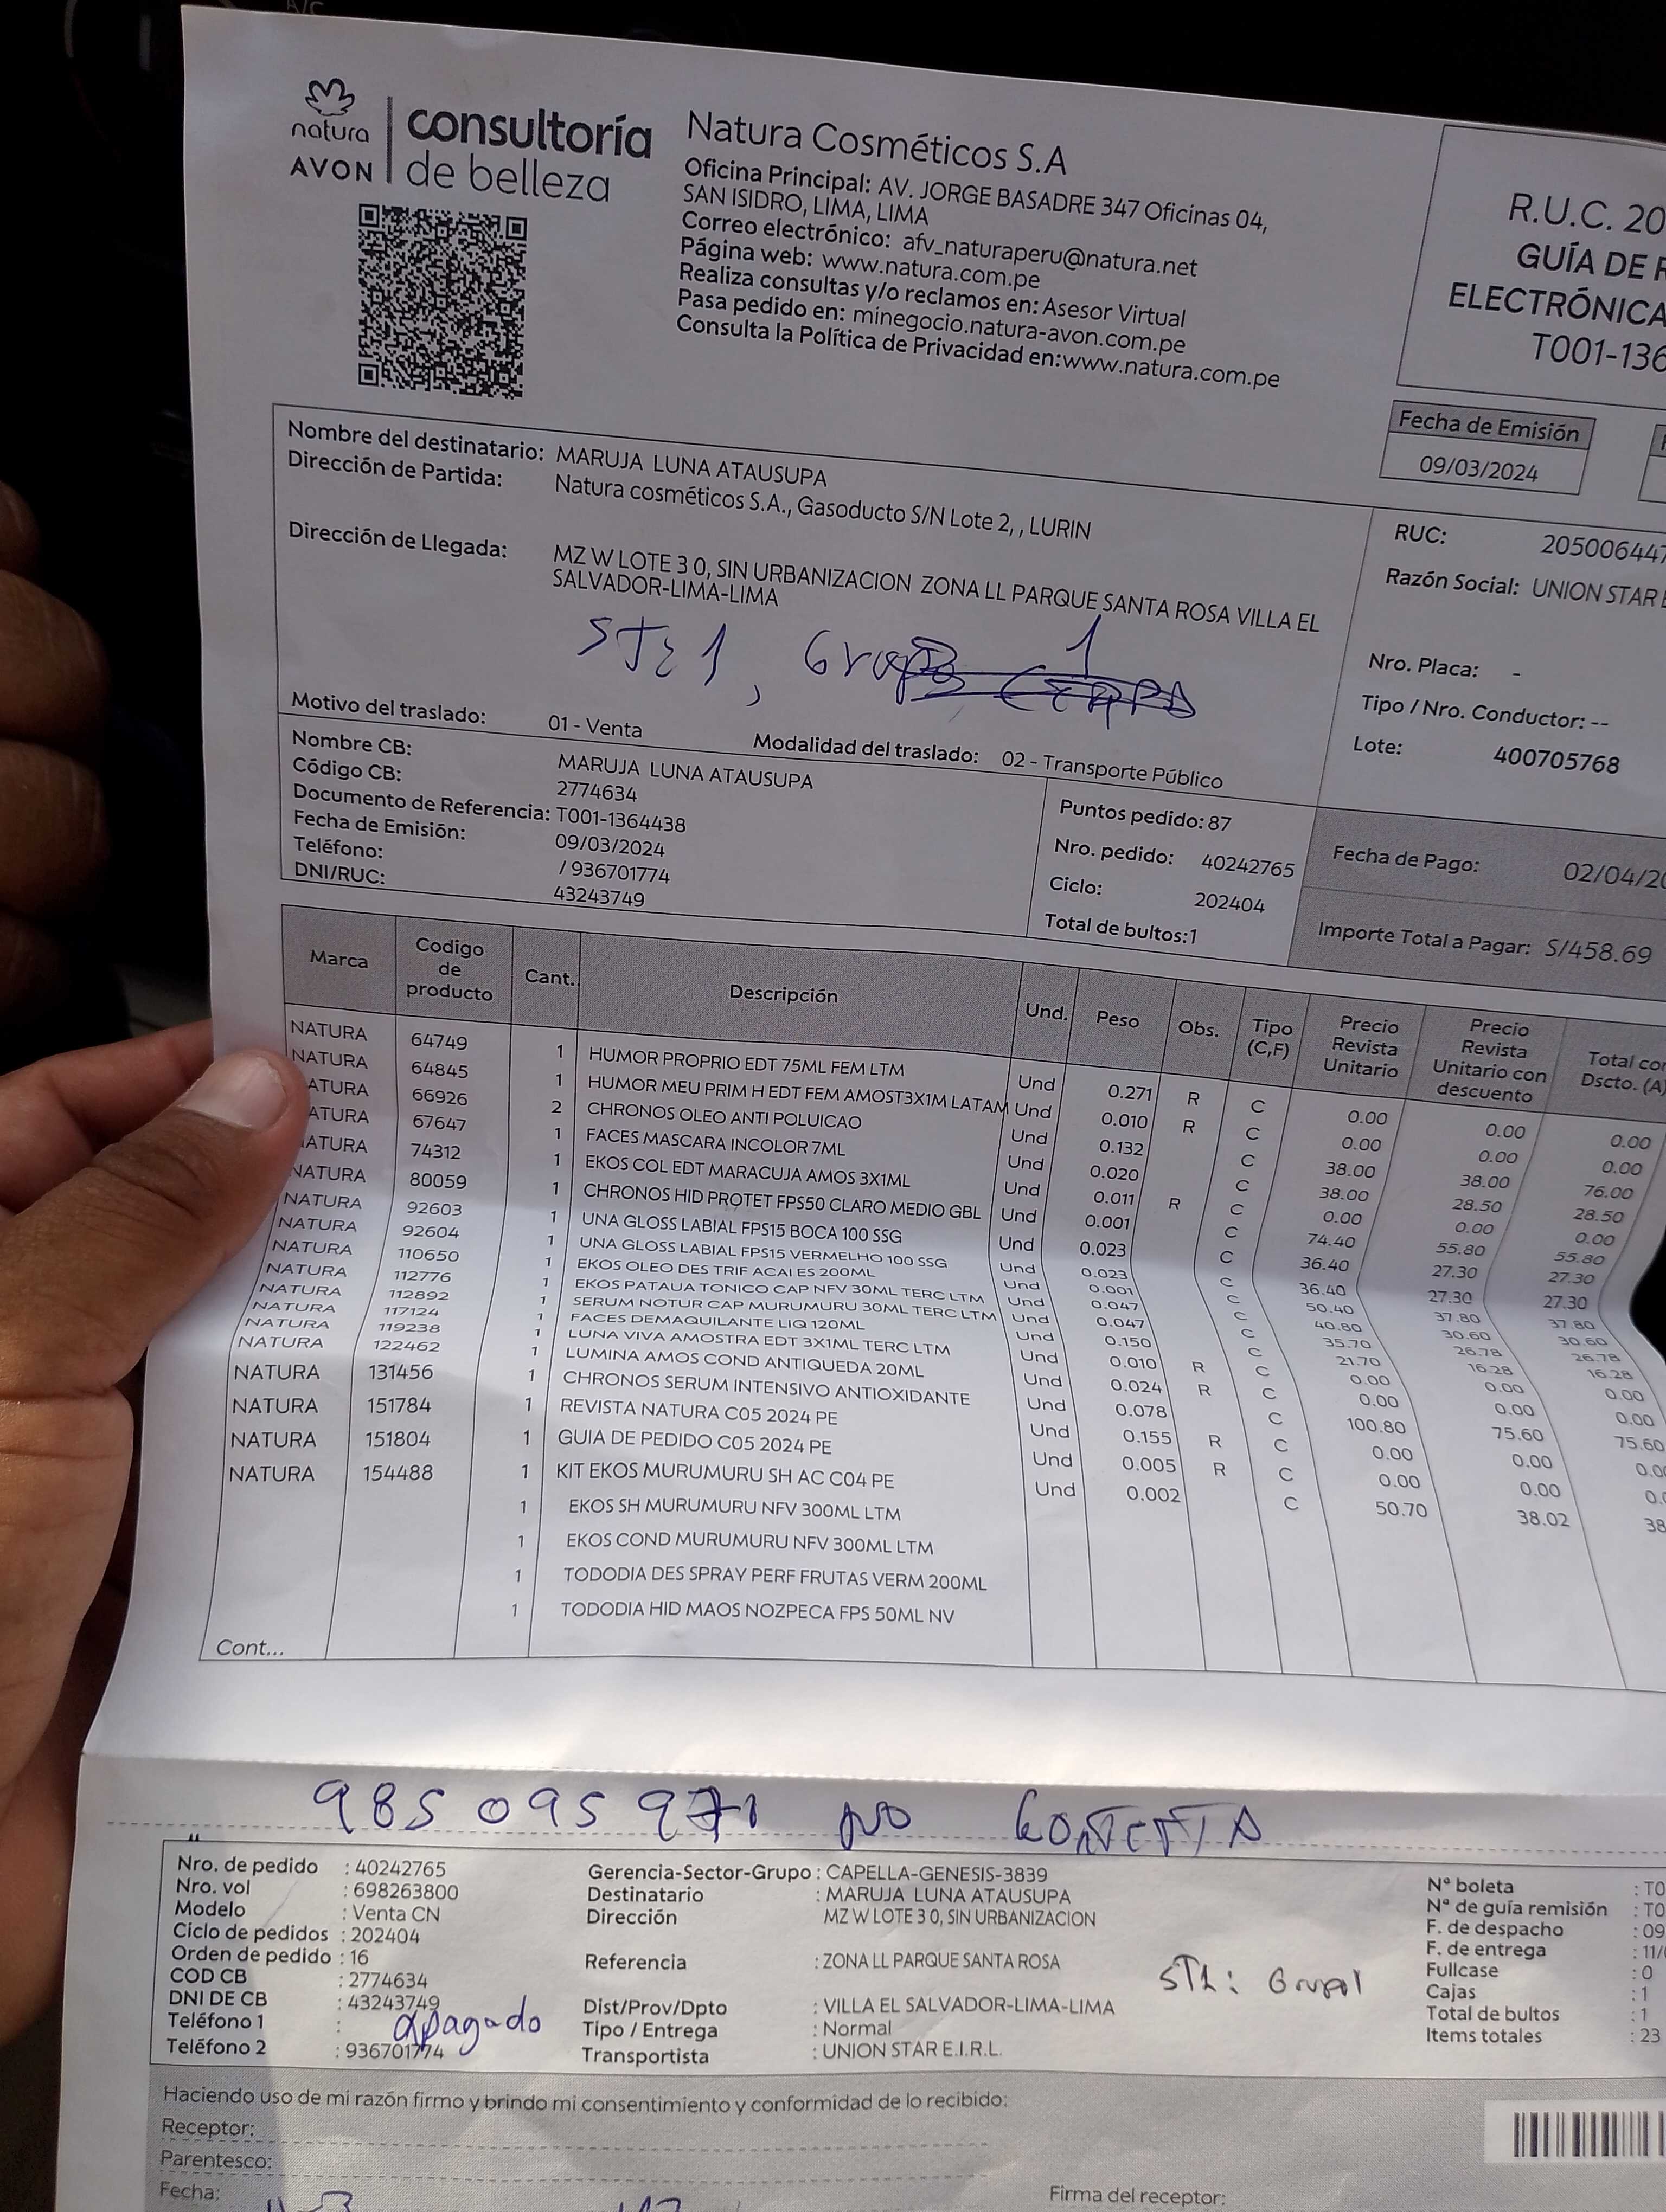 natura
AVON
consultoría
de belleza
Natura Cosméticos S.A
Oficina Principal: AV. JORGE BASADRE 347 Oficinas 04,
SAN ISIDRO, LIMA, LIMA
Correo electrónico: afv_naturaperu@natura.net
Página web: www.natura.com.pe
Realiza consultas y/o reclamos en: Asesor Virtual
Pasa pedido en: minegocio.natura-avon.com.pe
Consulta la Política de Privacidad en:www.natura.com.pe
R.U.C. 20
GUÍA DE
ELECTRÓNICA
T001-136
Fecha de Emisión
09/03/2024
Nombre del destinatario: MARUJA LUNA ATAUSUPA
Dirección de Partida: Natura cosméticos S.A., Gasoducto S/N Lote 2, , LURIN
Dirección de Llegada: MZ W LOTE 3 0, SIN URBANIZACION ZONA LL PARQUE SANTA ROSA VILLA EL
SALVADOR-LIMA-LIMA
Grupo 1
RUC: 205006447
Razón Social: UNION STAR
Nro. Placa: -
Tipo / Nro. Conductor: --
Lote: 400705768
Motivo del traslado: 01 - Venta Modalidad del traslado: 02 - Transporte Público
Nombre CB: MARUJA LUNA ATAUSUPA
Código CB: 2774634
Documento de Referencia: T001-1364438
Fecha de Emisión: 09/03/2024
Teléfono: / 936701774
DNI/RUC: 43243749
Puntos pedido: 87
Nro. pedido: 40242765
Ciclo: 202404
Total de bultos:1
Fecha de Pago: 02/04/20
Importe Total a Pagar: S/458.69
Marca Codigo de producto Cant. Descripción Und. Peso Obs. Tipo (C,F) Precio Revista Unitario Precio Revista Unitario con descuento Total con Dscto. (A)
NATURA 64749 1 HUMOR PROPRIO EDT 75ML FEM LTM Und 0.271 R C 0.00 0.00 0.00
NATURA 64845 1 HUMOR MEU PRIM H EDT FEM AMOST3X1M LATAM Und 0.010 R C 0.00 0.00 0.00
ATURA 66926 2 CHRONOS OLEO ANTI POLUICAO Und 0.132 C 38.00 38.00 76.00
ATURA 67647 1 FACES MASCARA INCOLOR 7ML Und 0.020 C 38.00 28.50 28.50
ATURA 74312 1 EKOS COL EDT MARACUJA AMOS 3X1ML Und 0.011 R C 0.00 0.00 0.00
NATURA 80059 1 CHRONOS HID PROTET FPS50 CLARO MEDIO GBL Und 0.001 C 74.40 55.80 55.80
NATURA 92603 1 UNA GLOSS LABIAL FPS15 BOCA 100 SSG Und 0.023 C 36.40 27.30 27.30
NATURA 92604 1 UNA GLOSS LABIAL FPS15 VERMELHO 100 SSG Und 0.023 C 36.40 27.30 27.30
NATURA 110650 1 EKOS OLEO DES TRIF ACAI ES 200ML Und 0.001 C 50.40 37.80 37.80
NATURA 112776 1 EKOS PATAUA TONICO CAP NFV 30ML TERC LTM Und 0.047 C 40.80 30.60 30.60
NATURA 112892 1 SERUM NOTUR CAP MURUMURU 30ML TERC LTM Und 0.047 C 35.70 26.78 26.78
NATURA 117124 1 FACES DEMAQUILANTE LIQ 120ML Und 0.150 C 21.70 16.28 16.28
NATURA 119238 1 LUNA VIVA AMOSTRA EDT 3X1ML TERC LTM Und 0.010 R C 0.00 0.00 0.00
NATURA 122462 1 LUMINA AMOS COND ANTIQUEDA 20ML Und 0.024 R C 0.00 0.00 0.00
NATURA 131456 1 CHRONOS SERUM INTENSIVO ANTIOXIDANTE Und 0.078 C 100.80 75.60 75.60
NATURA 151784 1 REVISTA NATURA C05 2024 PE Und 0.155 R C 0.00 0.00 0.0
NATURA 151804 1 GUIA DE PEDIDO C05 2024 PE Und 0.005 R C 0.00 0.00 0.
NATURA 154488 1 KIT EKOS MURUMURU SH AC C04 PE Und 0.002 C 50.70 38.02 38
1 EKOS SH MURUMURU NFV 300ML LTM
1 EKOS COND MURUMURU NFV 300ML LTM
1 TODODIA DES SPRAY PERF FRUTAS VERM 200ML
1 TODODIA HID MAOS NOZPECA FPS 50ML NV
Cont...
985 095 971 NO CONTESTA
Nro. de pedido : 40242765
Nro. vol : 698263800
Modelo : Venta CN
Ciclo de pedidos : 202404
Orden de pedido : 16
COD CB : 2774634
DNI DE CB : 43243749
Teléfono 1 : apagado
Teléfono 2 : 936701774
Gerencia-Sector-Grupo : CAPELLA-GENESIS-3839
Destinatario : MARUJA LUNA ATAUSUPA
Dirección MZ W LOTE 3 0, SIN URBANIZACION
Referencia : ZONA LL PARQUE SANTA ROSA
Dist/Prov/Dpto : VILLA EL SALVADOR-LIMA-LIMA
Tipo / Entrega : Normal
Transportista : UNION STAR E.I.R.L.
Nª boleta : T0
Nª de guía remisión : T0
F. de despacho : 09
F. de entrega : 11/
Fullcase : 0
Cajas : 1
Total de bultos : 1
Items totales : 23
Haciendo uso de mi razón firmo y brindo mi consentimiento y conformidad de lo recibido:
Receptor:
Parentesco:
Fecha:
Firma del receptor: